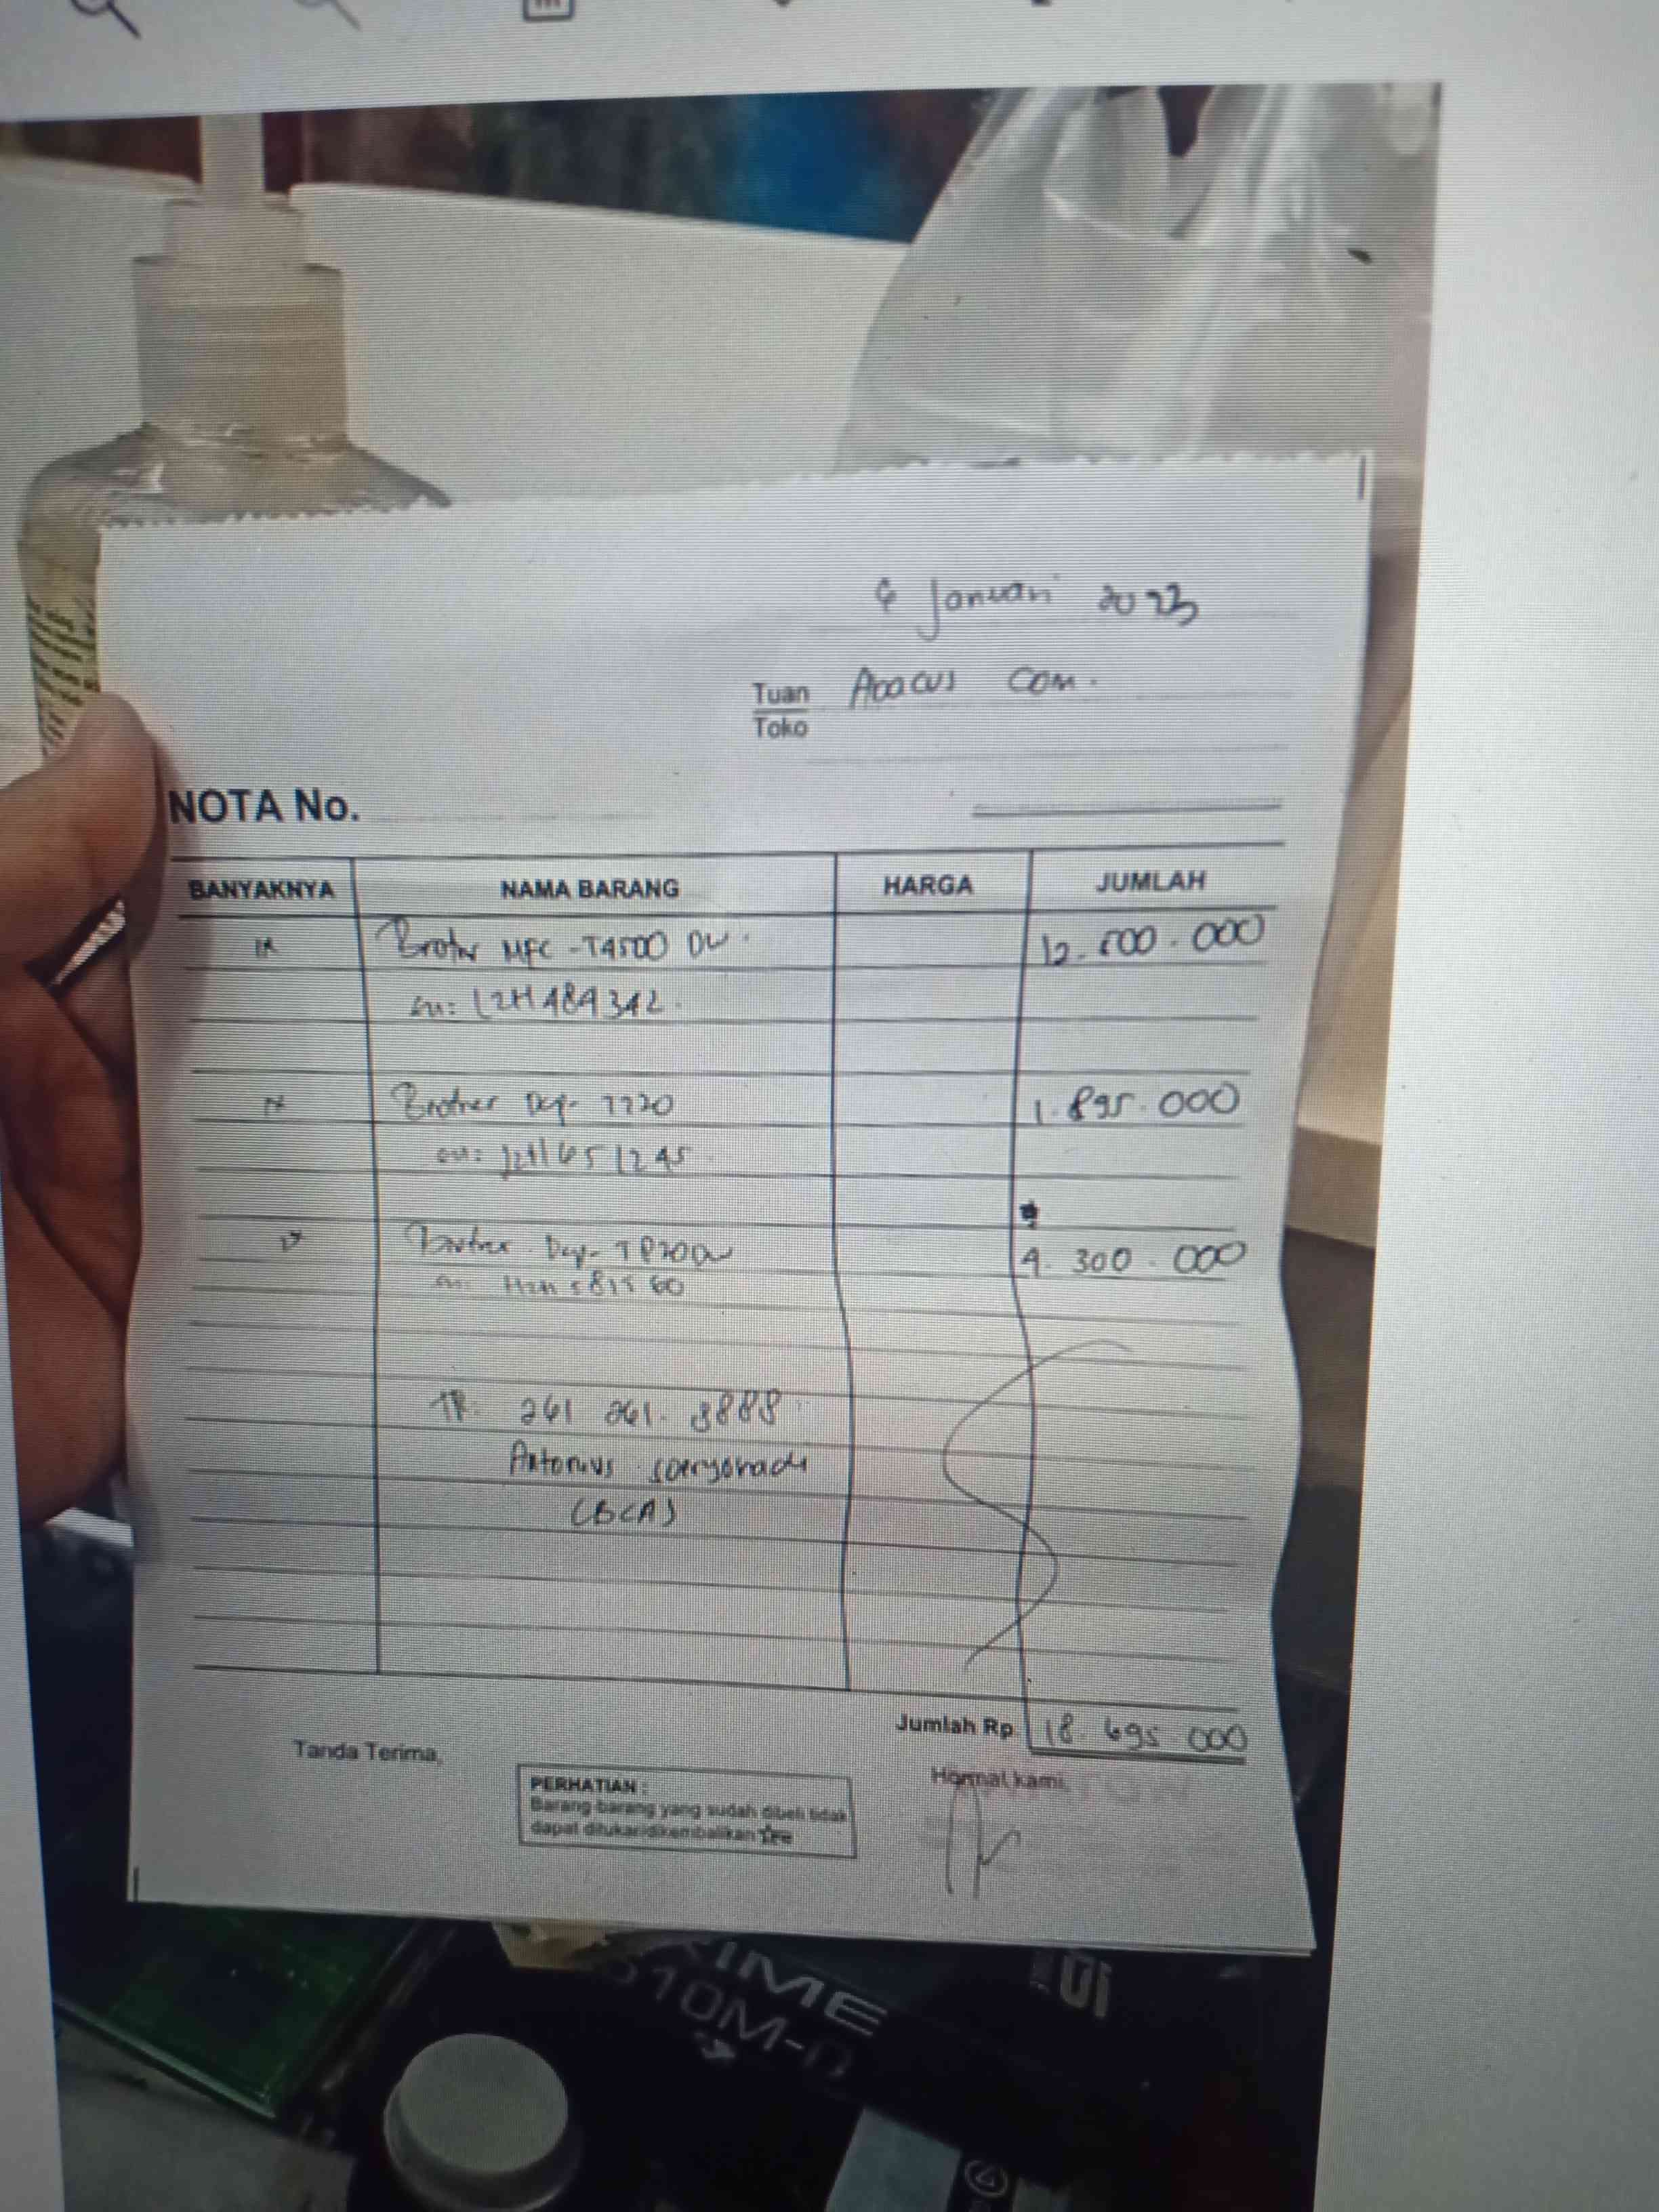 4 Januari 2023
Tuan Abacus Com.
Toko
NOTA No.
BANYAKNYA NAMA BARANG HARGA JUMLAH
Brother MFC-T4500 DW. 12.500.000
sn: L2H484342.
Brother Dcp- T220 1.895.000
sn:
Brother Dcp- T820DW 4.300.000
sn:
TR: 261 261. 8888
Antonius
(BCA)
Jumlah Rp. 18.695.000
Tanda Terima, Hormat kami,
PERHATIAN :
Barang-barang yang sudah dibeli tidak
dapat ditukar/dikembalikan
RIME
510M-